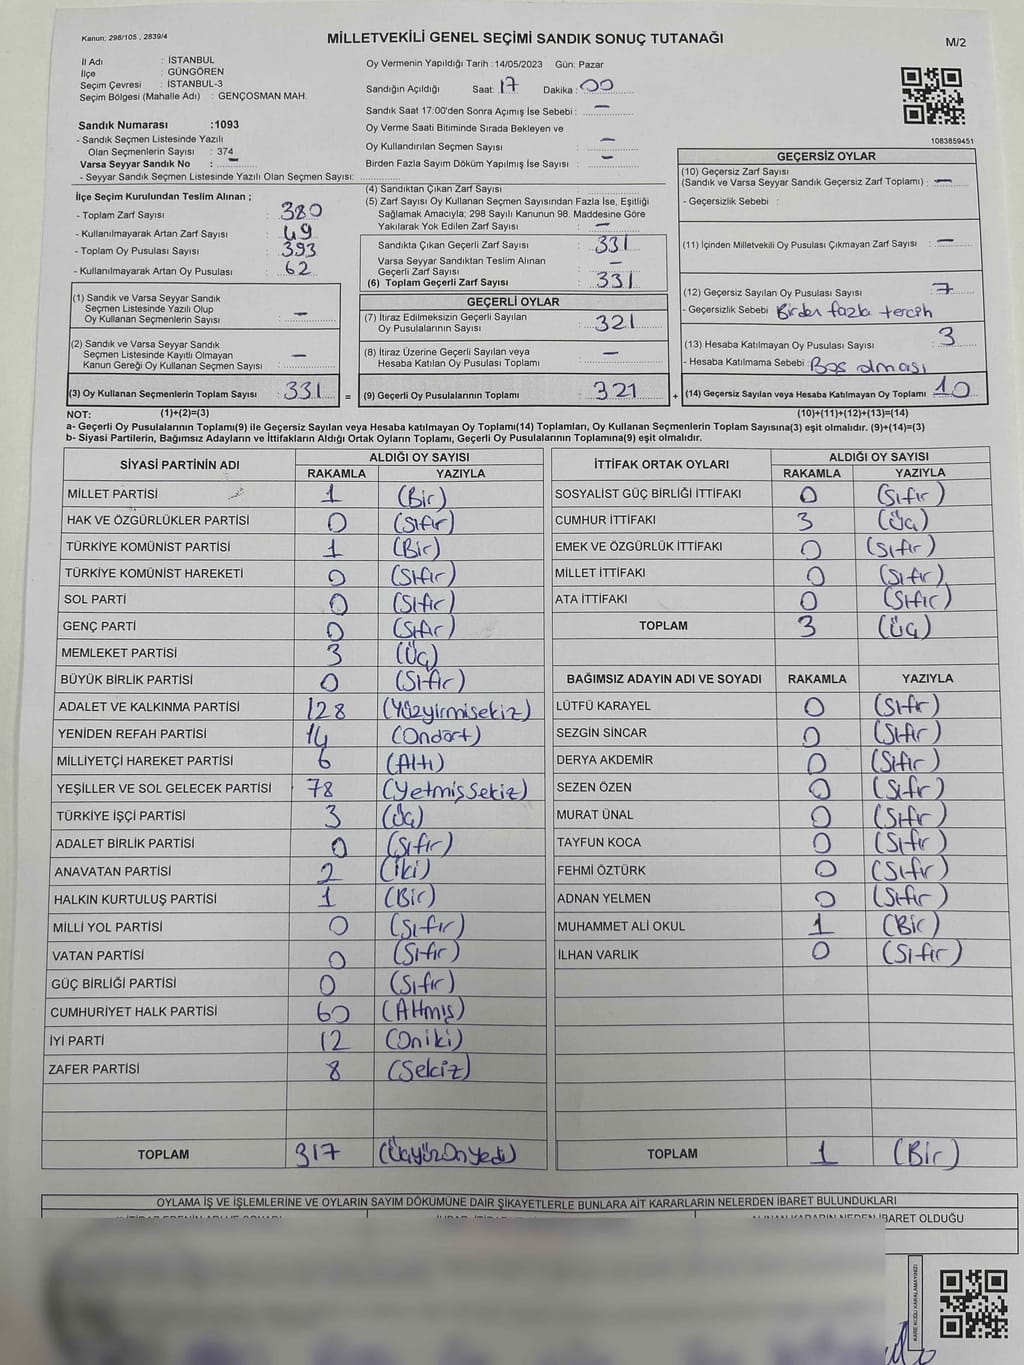 Kanun; 298/105 , 2839/4
MİLLETVEKİLİ GENEL SEÇİMİ SANDIK SONUÇ TUTANAĞI
M/2
İl Adı : İSTANBUL
İlçe : GÜNGÖREN
Seçim Çevresi : İSTANBUL-3
Seçim Bölgesi (Mahalle Adı) : GENÇOSMAN MAH.
Sandık Numarası :1093
- Sandık Seçmen Listesinde Yazılı
Olan Seçmenlerin Sayısı : 374
Varsa Seyyar Sandık No : –
- Seyyar Sandık Seçmen Listesinde Yazılı Olan Seçmen Sayısı:
Oy Vermenin Yapıldığı Tarih :14/05/2023 Gün: Pazar
Sandığın Açıldığı Saat: 17 Dakika : 00
Sandık Saat 17:00'den Sonra Açımış İse Sebebi : –
Oy Verme Saati Bitiminde Sırada Bekleyen ve
Oy Kullandırılan Seçmen Sayısı : –
Birden Fazla Sayım Döküm Yapılmış İse Sayısı : –
1083859451
İlçe Seçim Kurulundan Teslim Alınan ;
- Toplam Zarf Sayısı : 380
- Kullanılmayarak Artan Zarf Sayısı : 49
- Toplam Oy Pusulası Sayısı : 393
- Kullanılmayarak Artan Oy Pusulası : 62
(1) Sandık ve Varsa Seyyar Sandık
Seçmen Listesinde Yazılı Olup
Oy Kullanan Seçmenlerin Sayısı : –
(2) Sandık ve Varsa Seyyar Sandık
Seçmen Listesinde Kayıtlı Olmayan
Kanun Gereği Oy Kullanan Seçmen Sayısı : –
(3) Oy Kullanan Seçmenlerin Toplam Sayısı : 331 =
(4) Sandıktan Çıkan Zarf Sayısı :
(5) Zarf Sayısı Oy Kullanan Seçmen Sayısından Fazla İse, Eşitliği
Sağlamak Amacıyla; 298 Sayılı Kanunun 98. Maddesine Göre
Yakılarak Yok Edilen Zarf Sayısı : –
Sandıkta Çıkan Geçerli Zarf Sayısı : 331
Varsa Seyyar Sandıktan Teslim Alınan
Geçerli Zarf Sayısı : –
(6) Toplam Geçerli Zarf Sayısı : 331
GEÇERLİ OYLAR
(7) İtiraz Edilmeksizin Geçerli Sayılan
Oy Pusulalarının Sayısı : 321
(8) İtiraz Üzerine Geçerli Sayılan veya
Hesaba Katılan Oy Pusulası Toplamı : –
(9) Geçerli Oy Pusulalarının Toplamı : 321 +
GEÇERSİZ OYLAR
(10) Geçersiz Zarf Sayısı
(Sandık ve Varsa Seyyar Sandık Geçersiz Zarf Toplamı) : –
- Geçersizlik Sebebi :
(11) İçinden Milletvekili Oy Pusulası Çıkmayan Zarf Sayısı : –
(12) Geçersiz Sayılan Oy Pusulası Sayısı : 7
- Geçersizlik Sebebi : Birden fazla tercih
(13) Hesaba Katılmayan Oy Pusulası Sayısı : 3
- Hesaba Katılmama Sebebi : Boş olması
(14) Geçersiz Sayılan veya Hesaba Katılmayan Oy Toplamı : 10
NOT: (1)+(2)=(3) (10)+(11)+(12)+(13)=(14)
a- Geçerli Oy Pusulalarının Toplamı(9) ile Geçersiz Sayılan veya Hesaba katılmayan Oy Toplamı(14) Toplamları, Oy Kullanan Seçmenlerin Toplam Sayısına(3) eşit olmalıdır. (9)+(14)=(3)
b- Siyasi Partilerin, Bağımsız Adayların ve İttifakların Aldığı Ortak Oyların Toplamı, Geçerli Oy Pusulalarının Toplamına(9) eşit olmalıdır.
SİYASİ PARTİNİN ADI ALDIĞI OY SAYISI
RAKAMLA YAZIYLA
MİLLET PARTİSİ 1 (Bir)
HAK VE ÖZGÜRLÜKLER PARTİSİ 0 (Sıfır)
TÜRKİYE KOMÜNİST PARTİSİ 1 (Bir)
TÜRKİYE KOMÜNİST HAREKETİ 0 (Sıfır)
SOL PARTİ 0 (Sıfır)
GENÇ PARTİ 0 (Sıfır)
MEMLEKET PARTİSİ 3 (Üç)
BÜYÜK BİRLİK PARTİSİ 0 (Sıfır)
ADALET VE KALKINMA PARTİSİ 128 (Yüzyirmisekiz)
YENİDEN REFAH PARTİSİ 14 (Ondört)
MİLLİYETÇİ HAREKET PARTİSİ 6 (Altı)
YEŞİLLER VE SOL GELECEK PARTİSİ 78 (Yetmişsekiz)
TÜRKİYE İŞÇİ PARTİSİ 3 (Üç)
ADALET BİRLİK PARTİSİ 0 (Sıfır)
ANAVATAN PARTİSİ 2 (İki)
HALKIN KURTULUŞ PARTİSİ 1 (Bir)
MİLLİ YOL PARTİSİ 0 (Sıfır)
VATAN PARTİSİ 0 (Sıfır)
GÜÇ BİRLİĞİ PARTİSİ 0 (Sıfır)
CUMHURİYET HALK PARTİSİ 60 (Altmış)
İYİ PARTİ 12 (Oniki)
ZAFER PARTİSİ 8 (Sekiz)
TOPLAM 317 (ÜçyüzOnyedi)
İTTİFAK ORTAK OYLARI ALDIĞI OY SAYISI
RAKAMLA YAZIYLA
SOSYALİST GÜÇ BİRLİĞİ İTTİFAKI 0 (Sıfır)
CUMHUR İTTİFAKI 3 (Üç)
EMEK VE ÖZGÜRLÜK İTTİFAKI 0 (Sıfır)
MİLLET İTTİFAKI 0 (Sıfır)
ATA İTTİFAKI 0 (Sıfır)
TOPLAM 3 (Üç)
BAĞIMSIZ ADAYIN ADI VE SOYADI RAKAMLA YAZIYLA
LÜTFÜ KARAYEL 0 (Sıfır)
SEZGİN SİNCAR 0 (Sıfır)
DERYA AKDEMİR 0 (Sıfır)
SEZEN ÖZEN 0 (Sıfır)
MURAT ÜNAL 0 (Sıfır)
TAYFUN KOCA 0 (Sıfır)
FEHMİ ÖZTÜRK 0 (Sıfır)
ADNAN YELMEN 0 (Sıfır)
MUHAMMET ALİ OKUL 1 (Bir)
İLHAN VARLIK 0 (Sıfır)
TOPLAM 1 (Bir)
OYLAMA İŞ VE İŞLEMLERİNE VE OYLARIN SAYIM DÖKÜMÜNE DAİR ŞİKAYETLERLE BUNLARA AİT KARARLARIN NELERDEN İBARET BULUNDUKLARI
ALINAN KARARIN NEDEN İBARET OLDUĞU
KARE KODU KARALAMAYINIZ!